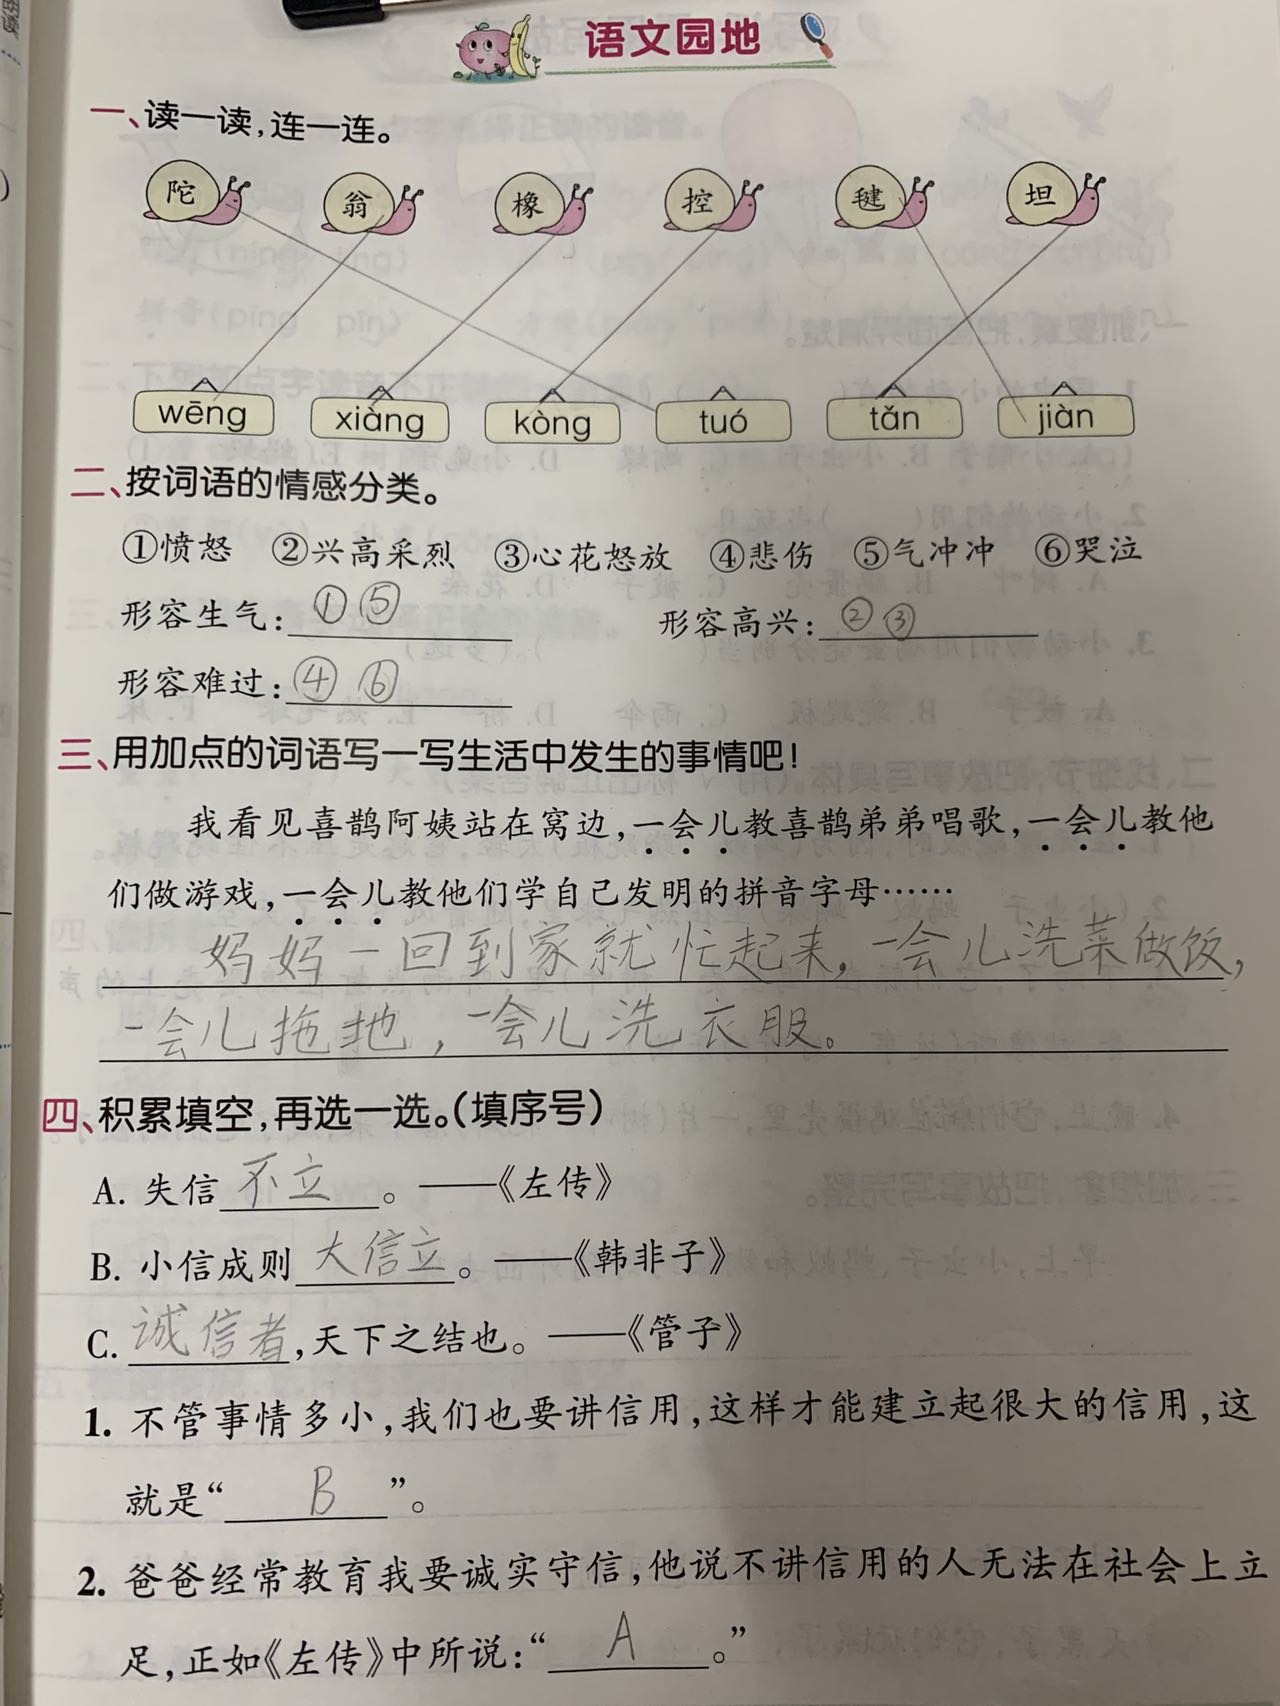 语文园地
一、读一读,连一连。
陀 翁 橡 控 毽 坦
wēng xiàng kòng tuó tǎn jiàn
二、按词语的情感分类。
①愤怒 ②兴高采烈 ③心花怒放 ④悲伤 ⑤气冲冲 ⑥哭泣
形容生气:①⑤ 形容高兴:②③
形容难过:④⑥
三、用加点的词语写一写生活中发生的事情吧!
我看见喜鹊阿姨站在窝边,一会儿教喜鹊弟弟唱歌,一会儿教他
们做游戏,一会儿教他们学自己发明的拼音字母……
妈妈一回到家就忙起来,一会儿洗菜做饭,
一会儿拖地,一会儿洗衣服。
四、积累填空,再选一选。(填序号)
A. 失信不立。——《左传》
B. 小信成则大信立。——《韩非子》
C. 诚信者,天下之结也。——《管子》
1. 不管事情多小,我们也要讲信用,这样才能建立起很大的信用,这
就是“B”。
2. 爸爸经常教育我要诚实守信,他说不讲信用的人无法在社会上立
足,正如《左传》中所说:“A。”